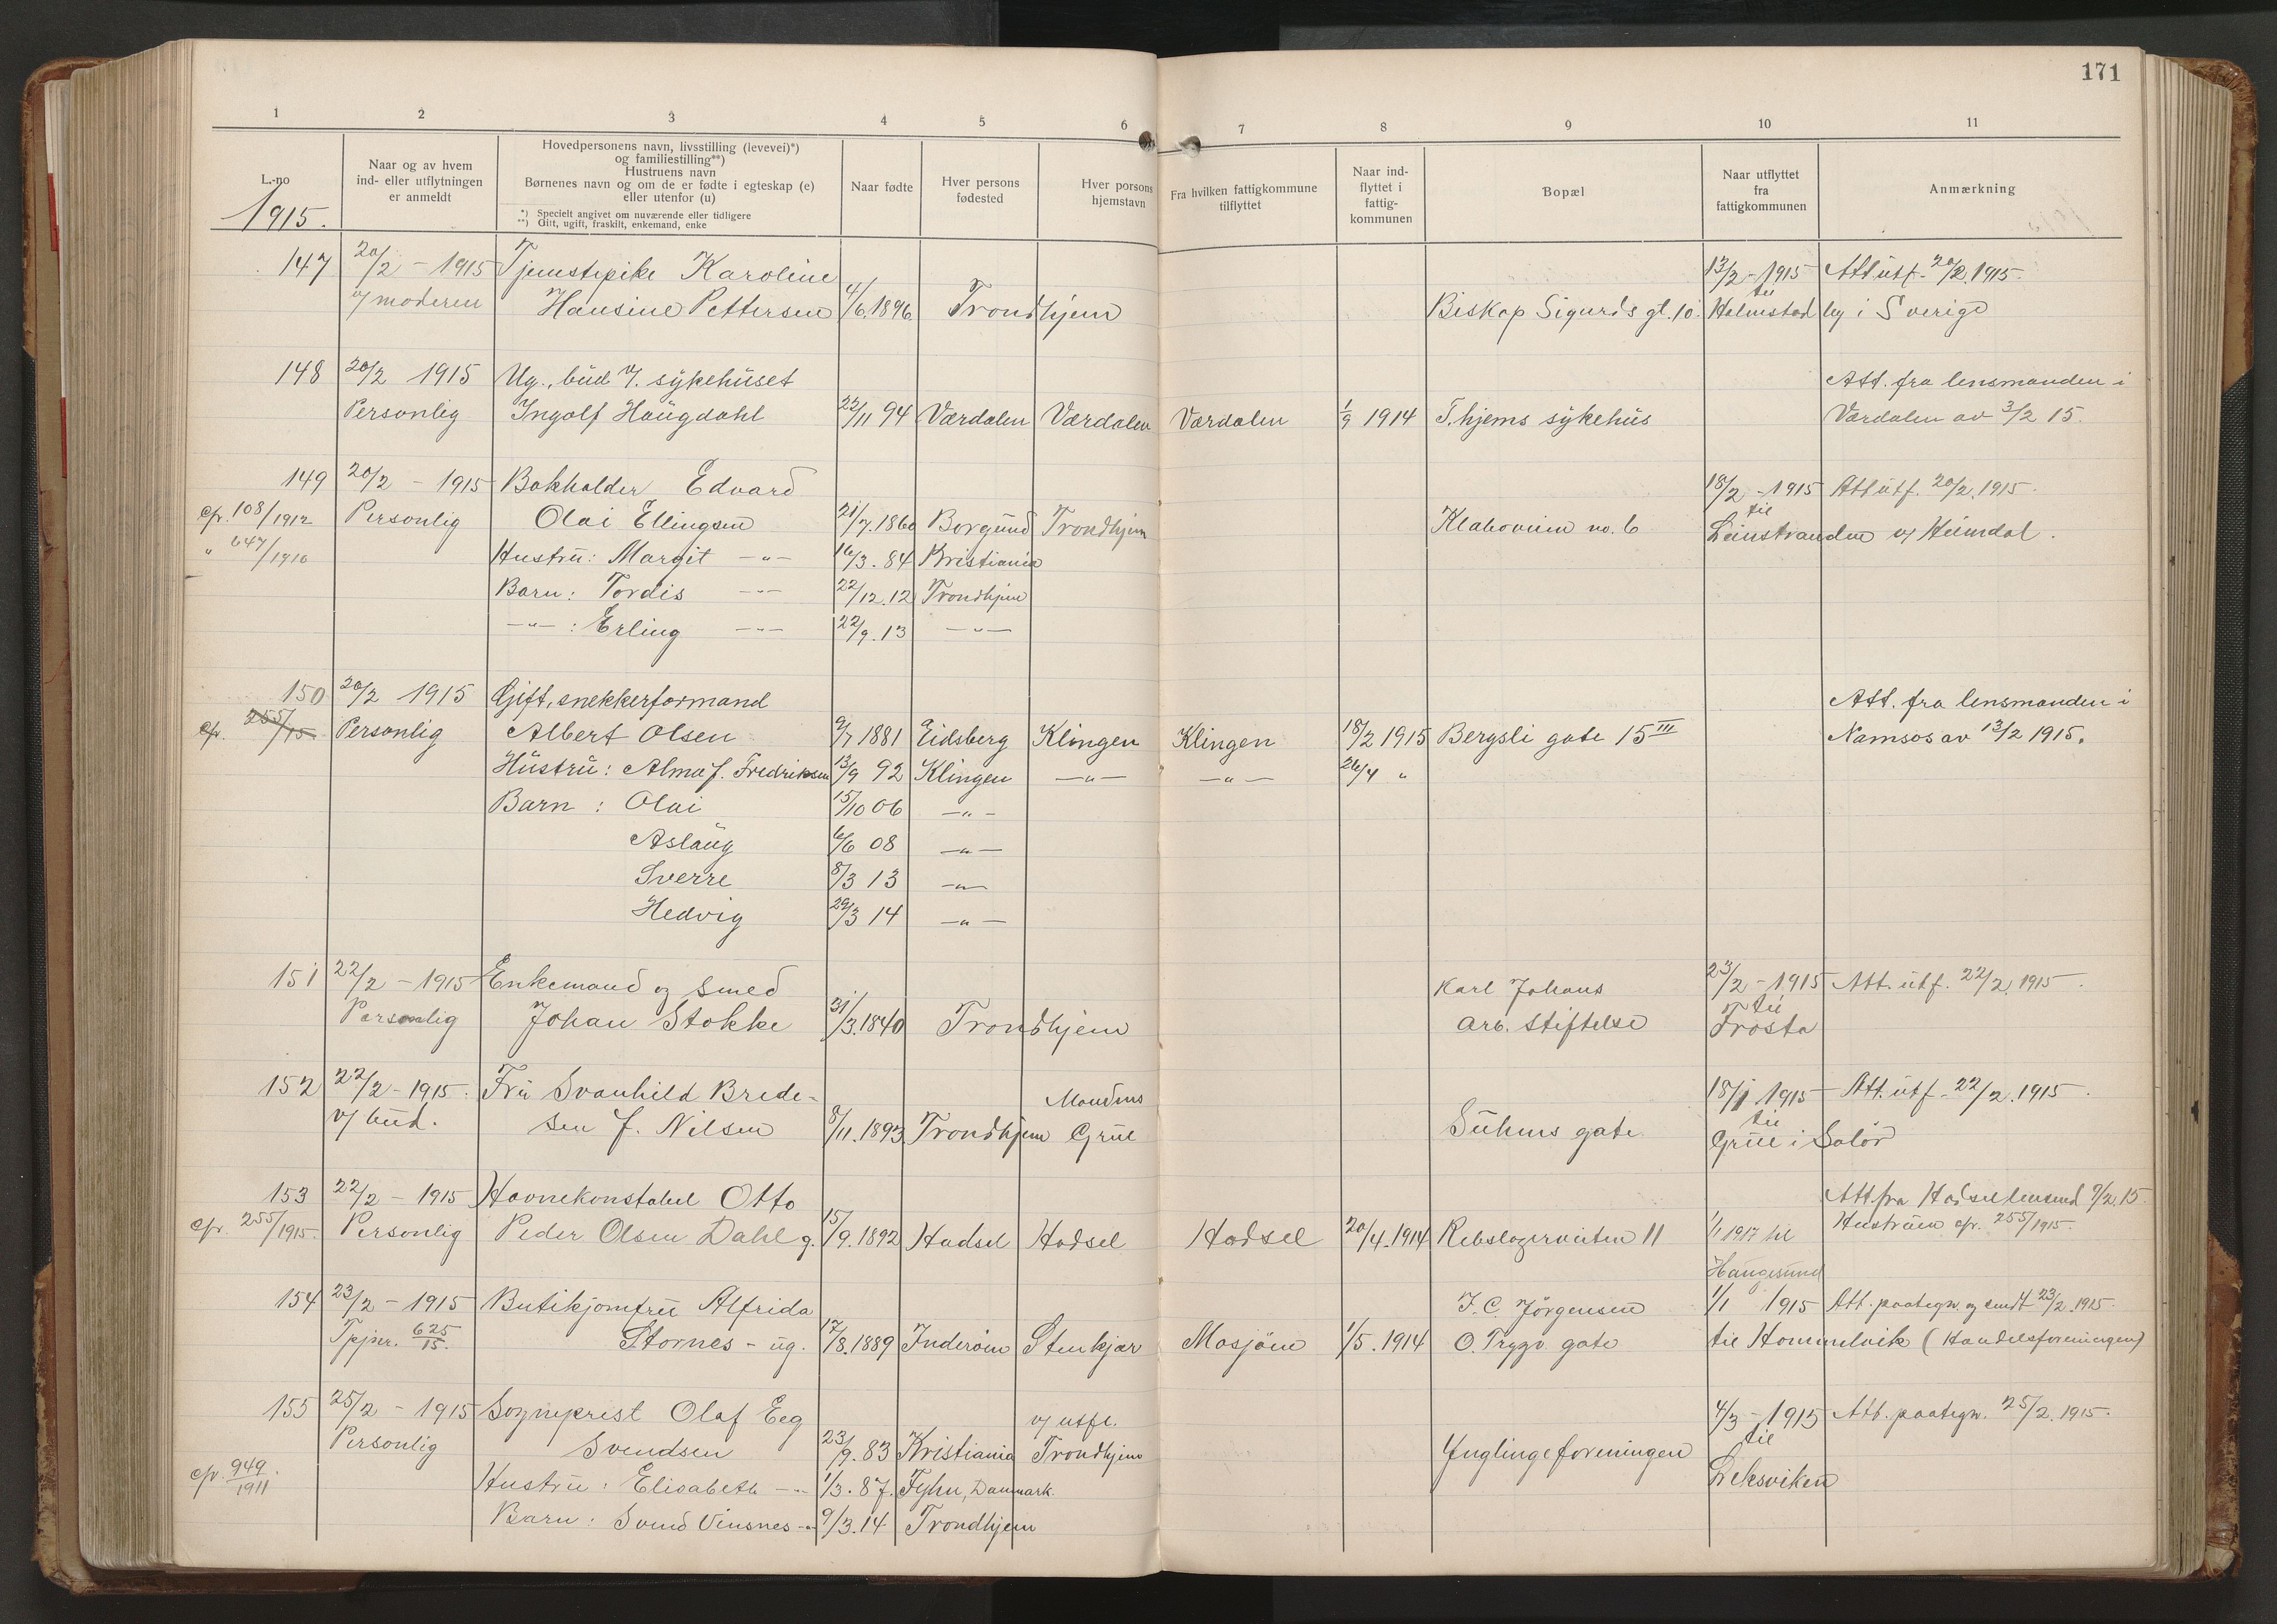 171
1 2 3 4 5 6 7 8 9 10 11
L.-no
1915.
Naar og av hvem
ind- eller utflytningen
er anmeldt
Hovedpersonens navn, livsstilling (levevei)*)
og familiestilling**)
Hustruens navn
Børnenes navn og om de er fødte i egteskap (e)
eller utenfor (u)
*) Specielt angivet om nuværende eller tidligere
**) Gift, ugift, fraskilt, enkemand, enke
Naar fødte
Hver persons
fødested
Hver porsons
hjemstavn
Fra hvilken fattigkommune
tilflyttet
Naar ind-
flyttet i
fattig-
kommunen
Bopæl
Naar utflyttet
fra
fattigkommunen
Anmærkning
147 20/2 - 1915 Tjenstepike Karoline 13/2 - 1915 Att. utf. 20/2. 1915.
v/ moderen Hansine Pettersen 4/6. 1896 Trondhjem Biskop Sigurds gt. 10. til Halmstad by i Sverige
148 20/2 1915 Ug., bud v. sykehuset Att. fra lensmanden i
Personlig Ingolf Haugdahl 22/11 94 Værdalen Værdalen Værdalen 1/9 1914 T.hjems sykehus Værdalen av 3/2 15.
149 20/2 - 1915 Bokholder Edvard 18/2 - 1915 Att utf. 20/2. 1915.
cfr. 108/1912 Personlig Olai Ellingsen 21/7. 1860 Borgund Trondhjem no. 6 til Leinstranden v/ Heimdal.
" 647/1916 Hustru: Margit -"- 16/3. 84 Kristiania
Barn: Tordis -"- 22/12. 12 Trondhjem
-"- : Erling -"- 22/9. 13 -"-
150 20/2 1915 Gift, snekkerformand Att. fra lensmanden i
cfr. 255/15 Personlig Albert Olsen 9/7 1881 Eidsberg Klingen Klingen 18/2 1915 Bergsli gate 15 III Namsos av 13/2 1915.
Hustru: Alma f. Fredriksen 13/9 92 Klingen -"- -"- 26/4 "
Barn : Olai 15/10 06 -"-
Aslaug 6/6 08 -"-
Sverre 8/3 13 -"-
Hedvig 29/3 14 -"-
151 22/2 - 1915 Enkemand og smed Karl Johans 23/2 - 1915 Att. utf. 22/2. 1915.
Personlig Johan Stokke 31/3. 1840 Trondhjem Arb. stiftelse til Frosta
152 22/2 - 1915. Fru Svanhild Brede- Mandens 18/1 1915 Att. utf. 22/2. 1915.
v/ bud. sen f. Nilsen 8/11. 1893 Trondhjem Grue Suhms gate til Grue i Solør
153 22/2 - 1915 Havnekonstabel Otto Att fra Hadsel lensmd 9/2. 15.
cfr. 255/1915. Personlig Peder Olsen Dahl g. 15/9. 1892 Hadsel Hadsel Hadsel 20/4. 1914 Rebslagerveiten 11 1/1 1917 til Hustruen cfr. 255/1915.
Haugesund
154 23/2 - 1915 Butikjomfru Alfrida J. C. Jörgensen 1/1 1915 Att. paategn. og sendt 23/2. 1915.
Tpjnr. 625/15. Stornes - ug. 17/8. 1889 Inderøen Stenkjær Mosjøen 1/5. 1914 O. Trygv. gate til Hommelvik (Handelsforeningen)
155 25/2 - 1915 Sogneprest Olaf Eeg v/ utfl. 4/3 - 1915 Att. paategn. 25/2. 1915.
Personlig Svendsen 23/9. 83 Kristiania Trondhjem Ynglingeforeningen til
cfr. 949/1911 Hustru: Elisabeth -"- 1/3. 87. Fyhn, Danmark. Leksviken
Barn: Svend Vinsnes -"- 9/3. 14 Trondhjem